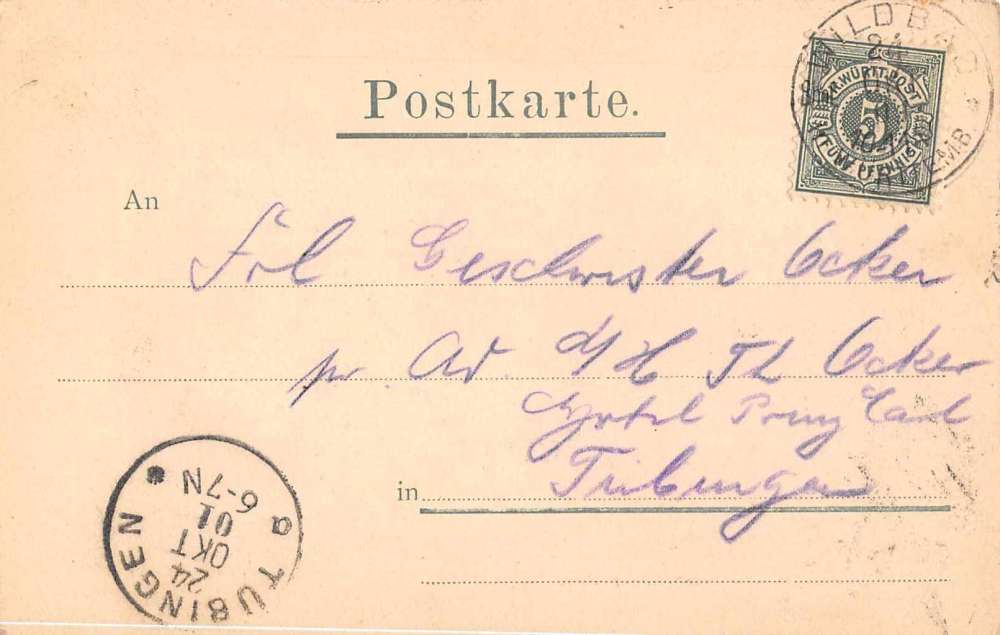 WILDBAD
24
K. WÜRTT. POST
5
FÜNF PFENNIG
Postkarte.
An
Frl Geschwister Ocker
pr. Ad. d/H Th Ocker
Hotel Prinz Carl
in Tübingen
TÜBINGEN
24
OKT
01
6-7N
a